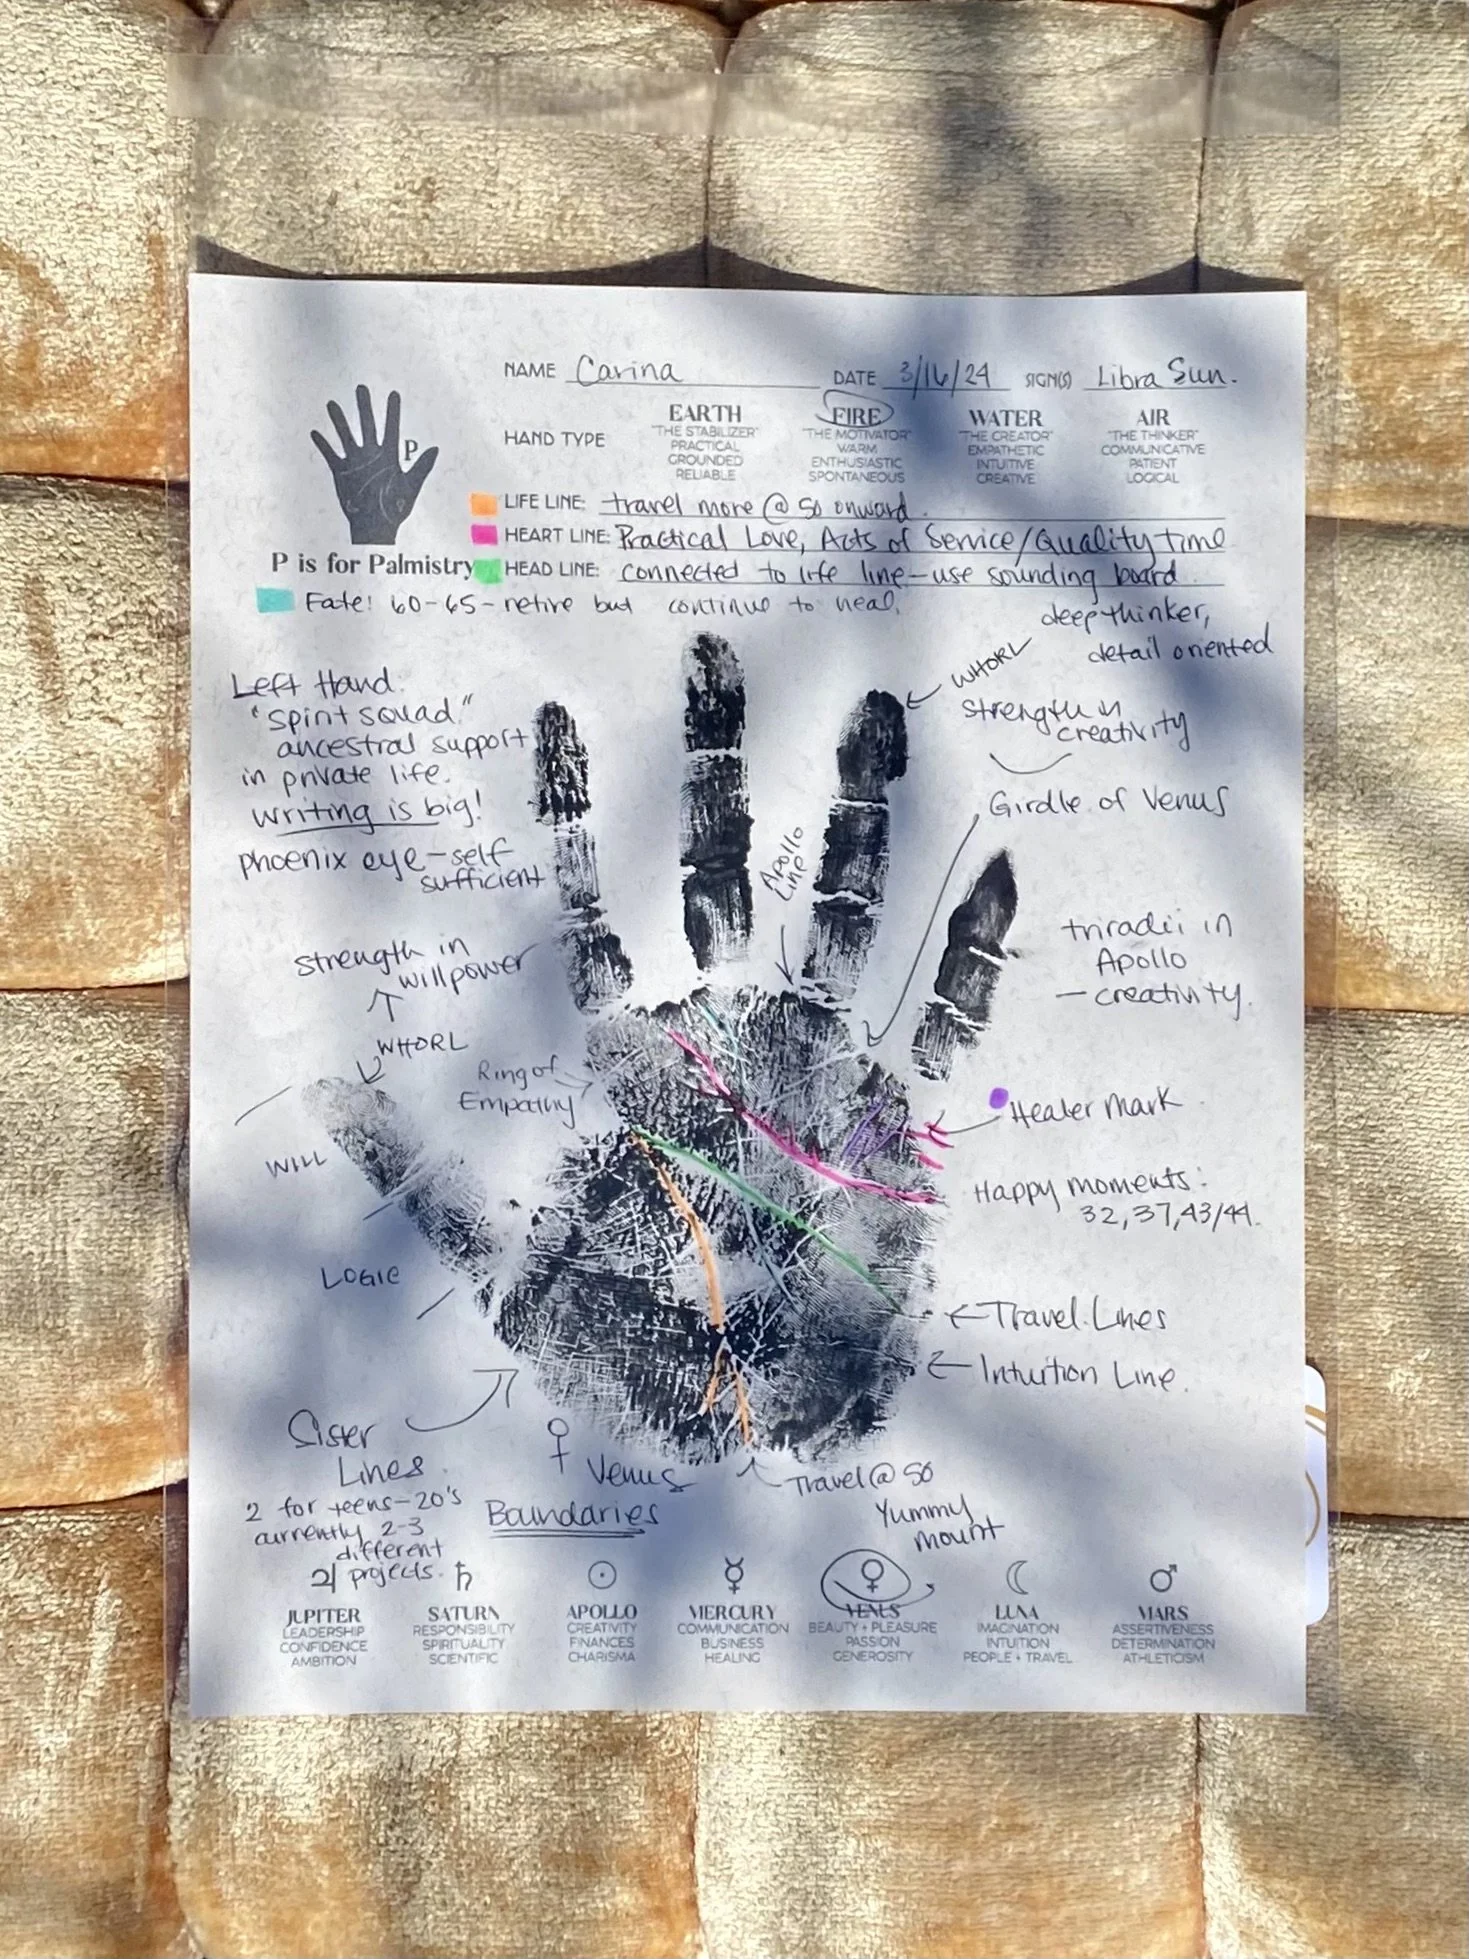 NAME Carina DATE 3/16/24 SIGN(S) Libra Sun.
HAND TYPE
EARTH
"THE STABILIZER"
PRACTICAL
GROUNDED
RELIABLE
FIRE
"THE MOTIVATOR"
WARM
ENTHUSIASTIC
SPONTANEOUS
WATER
"THE CREATOR"
EMPATHETIC
INTUITIVE
CREATIVE
AIR
"THE THINKER"
COMMUNICATIVE
PATIENT
LOGICAL
P
P is for Palmistry
LIFE LINE: travel more @ 50 onward.
HEART LINE: Practical Love, Acts of Service/Quality time
HEAD LINE: connected to life line - use sounding board
deep thinker,
detail oriented
Fate: 60-65 - retire but continue to heal.
Left Hand:
"spirit squad"
ancestral support
in private life.
writing is big!
phoenix eye - self
sufficient
strength in
willpower
WHORL
WHORL
strength in
creativity
Girdle of Venus
Apollo
Line
triradii in
Apollo
- creativity.
Ring of
Empathy
Healer Mark
WILL
Happy moments:
32, 37, 43/44.
LOGIC
Travel Lines
Intuition Line.
Sister
Lines
2 for teens - 20's
currently 2-3
different
projects.
♀ Venus
Boundaries
Travel @ 50
Yummy
mount
♃
JUPITER
LEADERSHIP
CONFIDENCE
AMBITION
♄
SATURN
RESPONSIBILITY
SPIRITUALITY
SCIENTIFIC
☉
APOLLO
CREATIVITY
FINANCES
CHARISMA
☿
MERCURY
COMMUNICATION
BUSINESS
HEALING
♀
VENUS
BEAUTY + PLEASURE
PASSION
GENEROSITY
☾
LUNA
IMAGINATION
INTUITION
PEOPLE + TRAVEL
♂
MARS
ASSERTIVENESS
DETERMINATION
ATHLETICISM